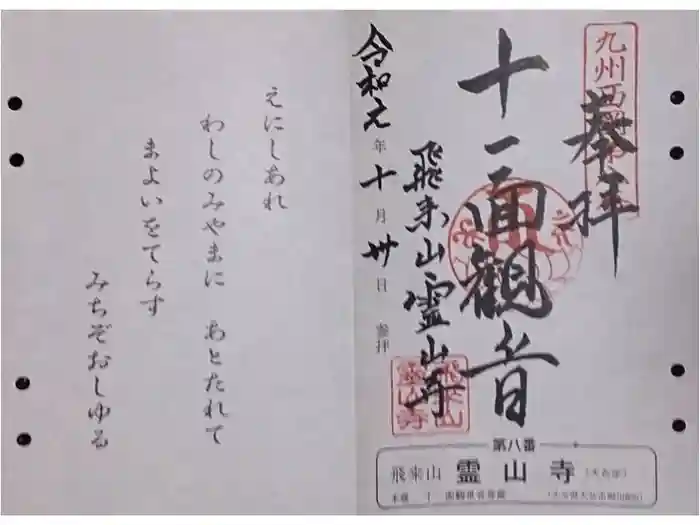 奉拝
十一面観音
飛来山霊山寺
令和元年十月卅日参拝
九州西国
飛来山
霊山寺
えにしあれ
わしのみやまに　あとたれて
まよいをてらす
みちぞおしゆる
第八番
飛来山　霊山寺（天台宗）
本尊　十一面観世音菩薩